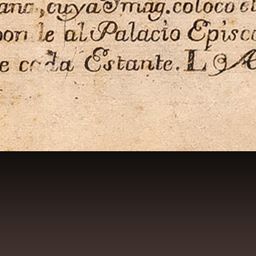 ana, cuya Ymag. coloco el
pon le al Palacio Episco
e cada Estante. L